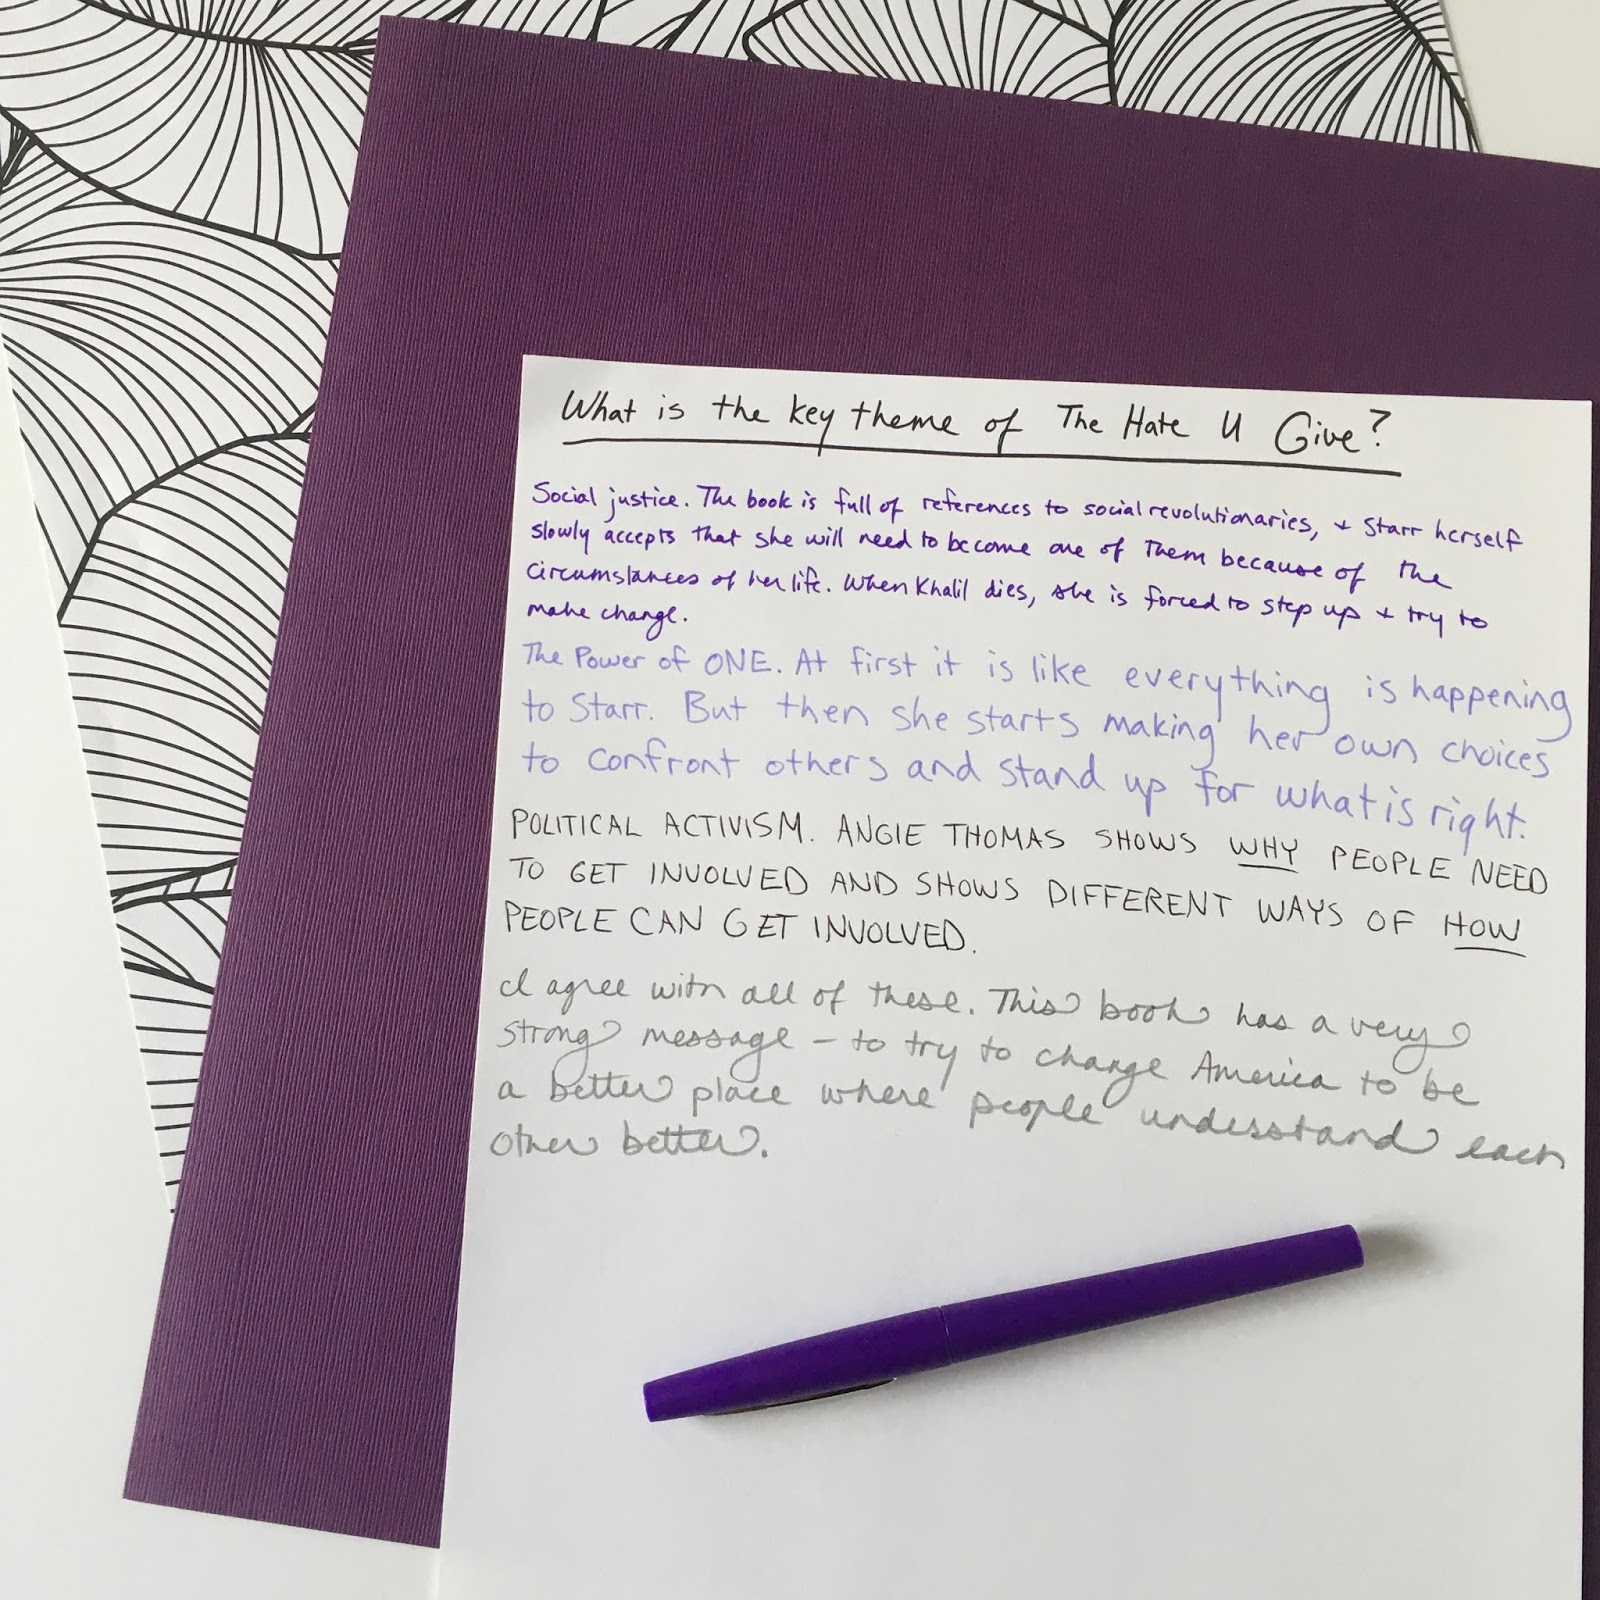 What is the key theme of The Hate U Give?
Social justice. The book is full of references to social revolutionaries, + Starr herself
slowly accepts that she will need to become one of them because of the
circumstances of her life. When Khalil dies, she is forced to step up + try to
make change.
The Power of ONE. At first it is like everything is happening
to Starr. But then she starts making her own choices
to confront others and stand up for what is right.
POLITICAL ACTIVISM. ANGIE THOMAS SHOWS WHY PEOPLE NEED
TO GET INVOLVED AND SHOWS DIFFERENT WAYS OF HOW
PEOPLE CAN GET INVOLVED.
I agree with all of these. This book has a very
strong message – to try to change America to be
a better place where people understand each
other better.